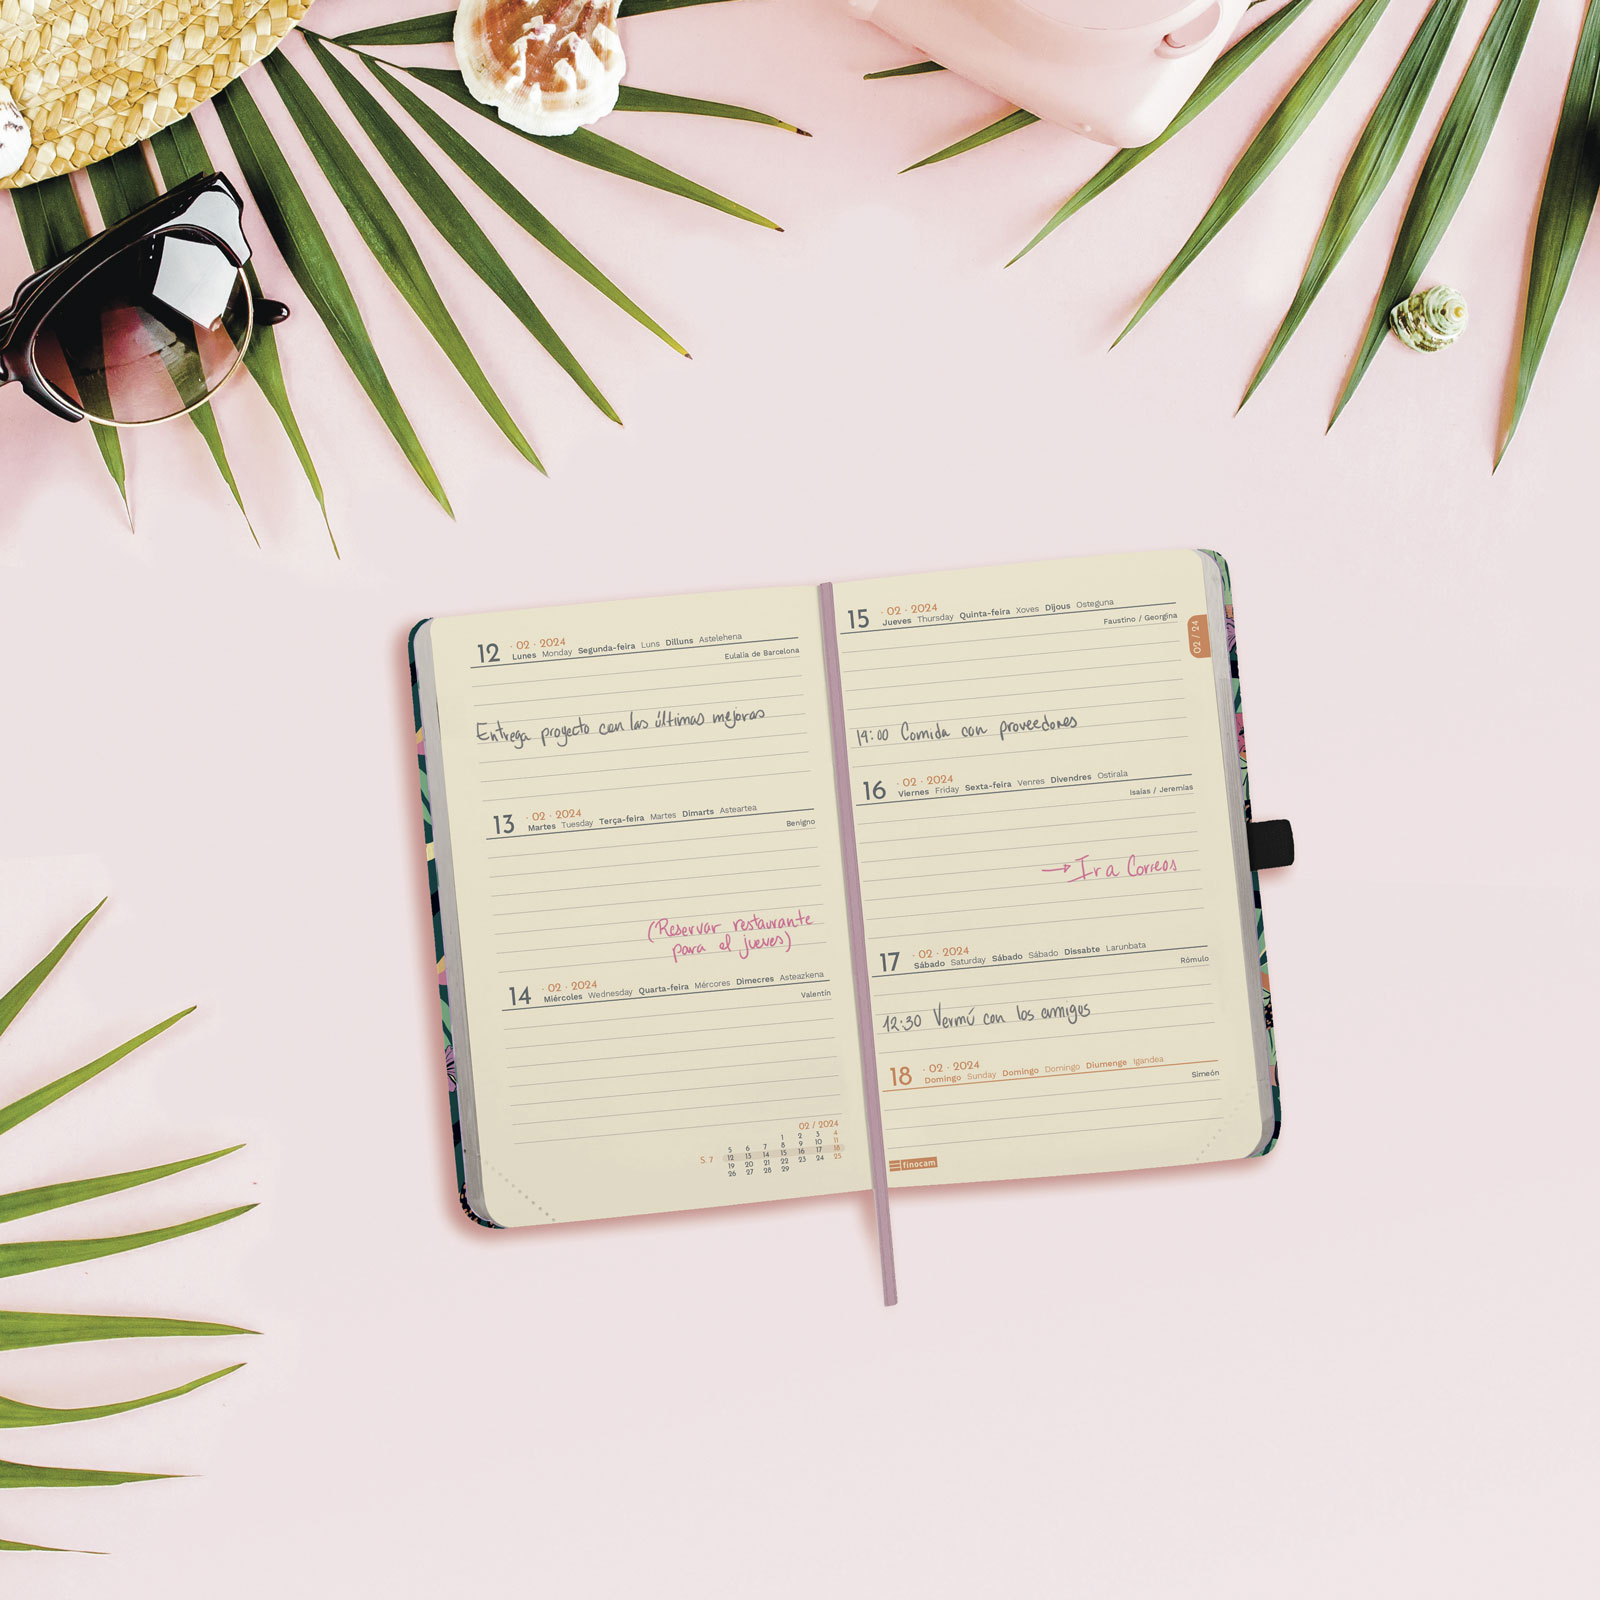 12 · 02 · 2024
Lunes Monday Segunda-feira Luns Dilluns Astelehena
Eulalia de Barcelona
Entrega proyecto con las últimas mejoras
13 · 02 · 2024
Martes Tuesday Terça-feira Martes Dimarts Asteartea
Benigno
(Reservar restaurante
para el jueves)
14 · 02 · 2024
Miércoles Wednesday Quarta-feira Mércores Dimecres Asteazkena
Valentín
02 / 2024
1 2 3 4
5 6 7 8 9 10 11
S. 7 12 13 14 15 16 17 18
19 20 21 22 23 24 25
26 27 28 29
15 · 02 · 2024
Jueves Thursday Quinta-feira Xoves Dijous Osteguna
Faustino / Georgina
02 / 24
14:00 Comida con proveedores
16 · 02 · 2024
Viernes Friday Sexta-feira Venres Divendres Ostirala
Isaías / Jeremías
→ Ir a Correos
17 · 02 · 2024
Sábado Saturday Sábado Sábado Dissabte Larunbata
Rómulo
12:30 Vermú con los amigos
18 · 02 · 2024
Domingo Sunday Domingo Domingo Diumenge Igandea
Simeón
finocam